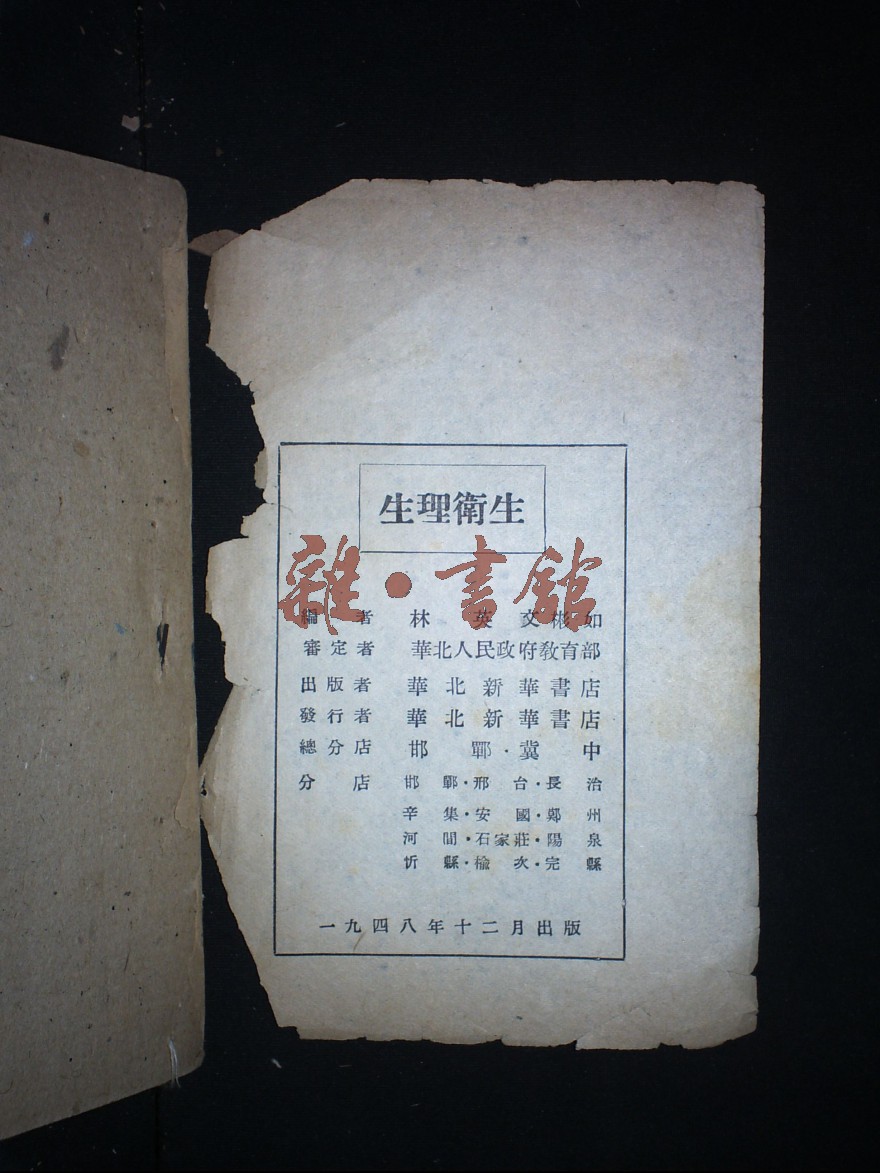 生理衛生
雜·書館
編者 林英 文彬如
審定者 華北人民政府教育部
出版者 華北新華書店
發行者 華北新華書店
總分店 邯鄲·冀中
分店 邯鄲·邢台·長治
辛集·安國·鄭州
河間·石家莊·陽泉
忻縣·榆次·完縣
一九四八年十二月出版